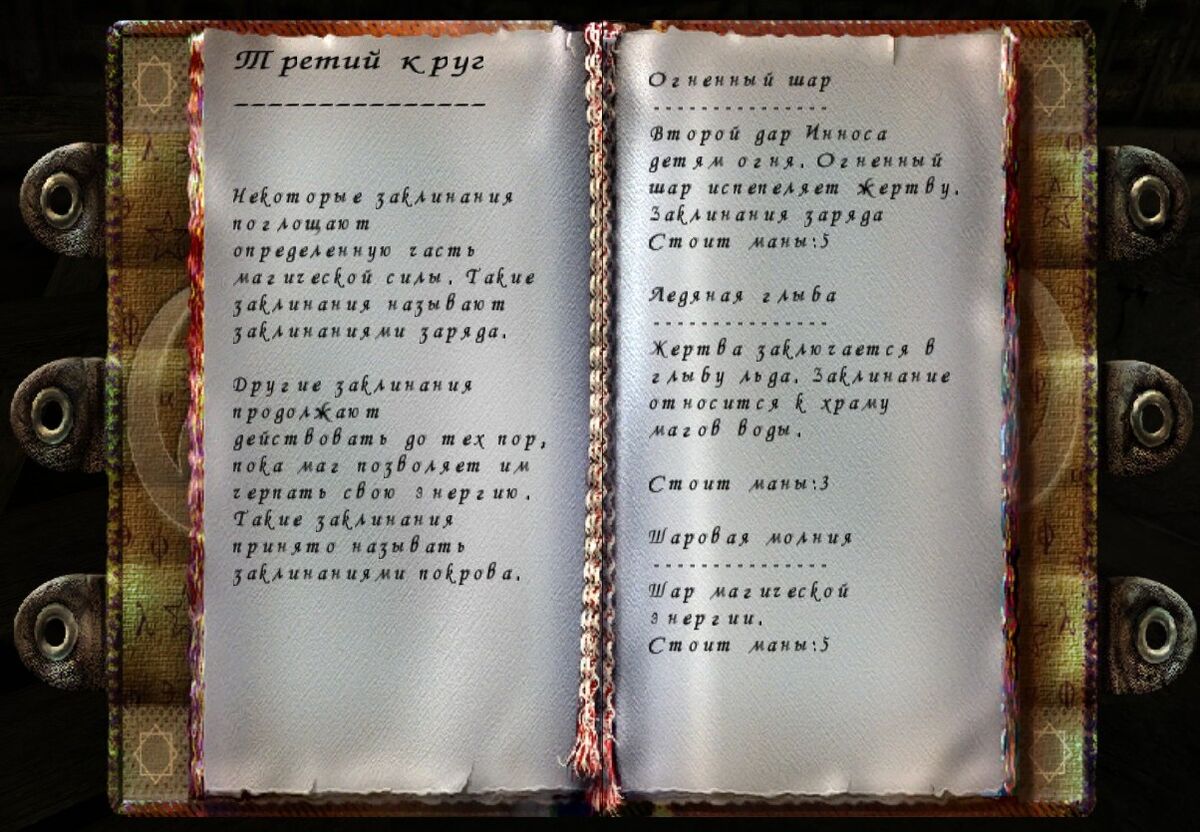 Третий круг
---------------
Некоторые заклинания
поглощают
определенную часть
магической силы. Такие
заклинания называют
заклинаниями заряда.
Другие заклинания
продолжают
действовать до тех пор,
пока маг позволяет им
черпать свою энергию.
Такие заклинания
принято называть
заклинаниями покрова.
Огненный шар
--------------
Второй дар Инноса
детям огня. Огненный
шар испепеляет жертву.
Заклинания заряда
Стоит маны:5
Ледяная глыба
--------------
Жертва заключается в
глыбу льда. Заклинание
относится к храму
магов воды.
Стоит маны:3
Шаровая молния
--------------
Шар магической
энергии.
Стоит маны:5